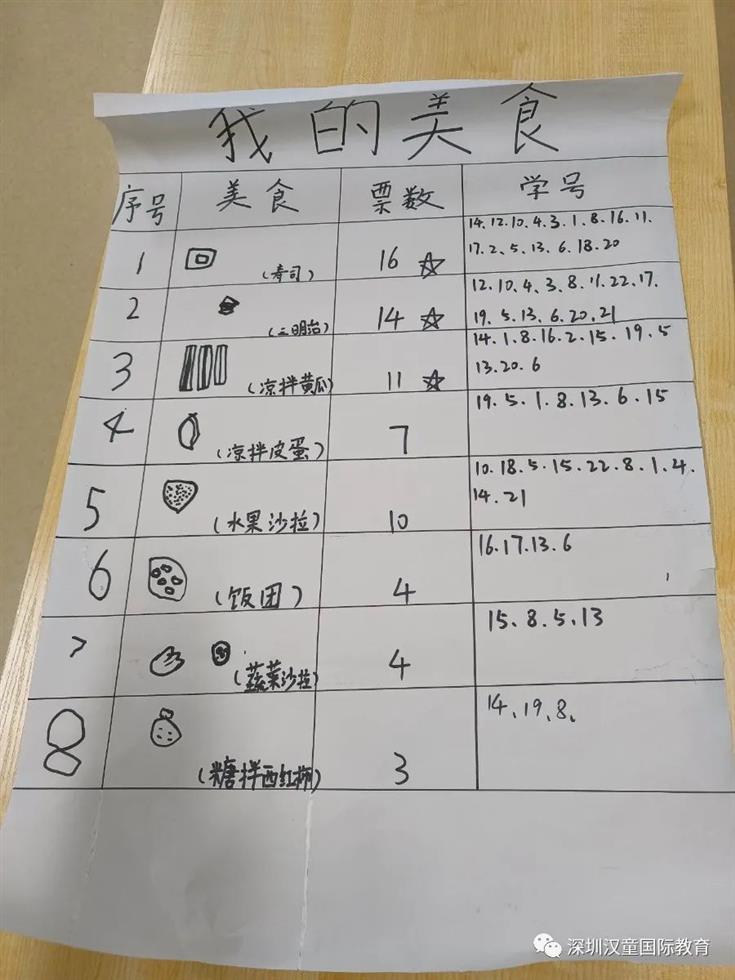 我的美食
序号 美食 票数 学号
1 (寿司) 16 14.12.10.4.3.1.8.16.11.
17.2.5.13.6.18.20
2 (三明治) 14 12.10.4.3.8.11.22.17.
19.5.13.6.20.21
3 (凉拌黄瓜) 11 14.1.8.16.2.15.19.5
13.20.6
4 (凉拌皮蛋) 7 19.5.1.8.13.6.15
5 (水果沙拉) 10 10.18.5.15.22.8.1.4.
14.21
6 (饭团) 4 16.17.13.6
7 (蔬菜沙拉) 4 15.8.5.13
8 (糖拌西红柿) 3 14、19、8、
深圳汉童国际教育